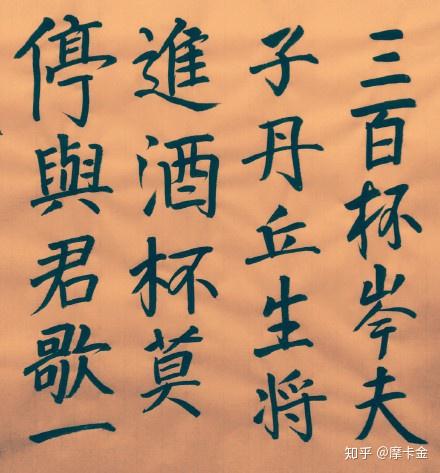 三百杯岑夫
子丹丘生将
進酒杯莫
停與君歌一
知乎 @摩卡金